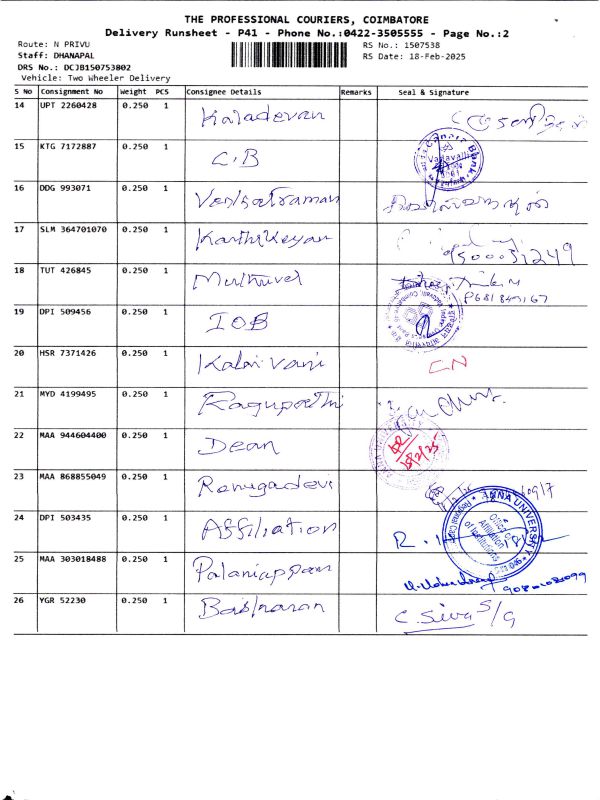 THE PROFESSIONAL COURIERS, COIMBATORE
Delivery Runsheet - P41 - Phone No.:0422-3505555 - Page No.:2
Route: N PRIVU
RS No.: 1507538
Staff: DHANAPAL
RS Date: 18-Feb-2025
DRS No.: DCJB150753802
Vehicle: Two Wheeler Delivery
S No Consignment No Weight PCS Consignee Details Remarks Seal & Signature
14 UPT 2260428 0.250 1 Kaladevan
15 KTG 7172887 0.250 1 C.B
Canara Bank
16 DDG 993071 0.250 1 Venkatraman
17 SLM 364701070 0.250 1 Karthikeyan
9500051249
18 TUT 426845 0.250 1 Muthuvel
19 DPI 509456 0.250 1 IOB
20 HSR 7371426 0.250 1 Kalaivani CN
21 MYD 4199495 0.250 1 Ragupathi
22 MAA 944604400 0.250 1 Dean
18/2/25
23 MAA 868855049 0.250 1 Renugadevi
24 DPI 503435 0.250 1 Affiliation
ANNA UNIVERSITY
Office of
Affiliation
of Institutions
25 MAA 303018488 0.250 1 Palaniappan
26 YGR 52230 0.250 1 Baskaran C. Siva S/G